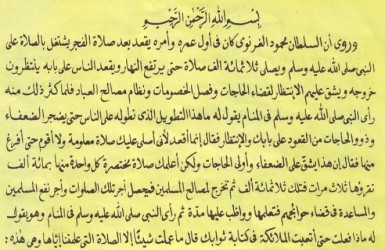 بسم الله الرحمن الرحيم
وروى أن السلطان محمود الغزنوى كان فى أول عمره وأمره يقعد بعد صلاة الفجر يشتغل بالصلاة على
النبى صلى الله عليه وسلم ويصلى ثلاثمائة ألف صلاة حتى يرتفع النهار ويقعد الناس على بابه ينتظرون
خروجه ويشق عليهم الانتظار لقضاء الحاجات وفصل الخصومات ونظام مصالح العباد فلما كثر ذلك منه
رأى النبى صلى الله عليه وسلم فى المنام يقول له ما هذا التطويل الذى تطوله على الناس حتى يضجر الضعفاء
وذووالحاجات من القعود على بابك والإنتظار فقال إنما أقعد لأنى أصلى عليك صلاة معلومة ولا أقوم حتى أفرغ
منها فقال إن هذا يشق على الضعفاء وأولى الحاجات ولكن أعلمك صلاة مختصرة كل واحدة منها بمائة ألف
تقرؤها ثلاث مرات فتلك ثلاثمائة ألف ثم تخرج لمصالح المسلمين فيحصل أجر تلك الصلوات وأجر نفع المسلمين
والمساعدة فى قضاء حوائجهم فتعلمها وواظب عليها مدة ثم رأى النبى صلى الله عليه وسلم فى المنام وهو يقول
له ماذا فعلت حتى أتعبت الملائكة فى كتابة ثوابك قال ما عملت شيئا إلا الصلاة التى علمتنا إياها وهى هذه :